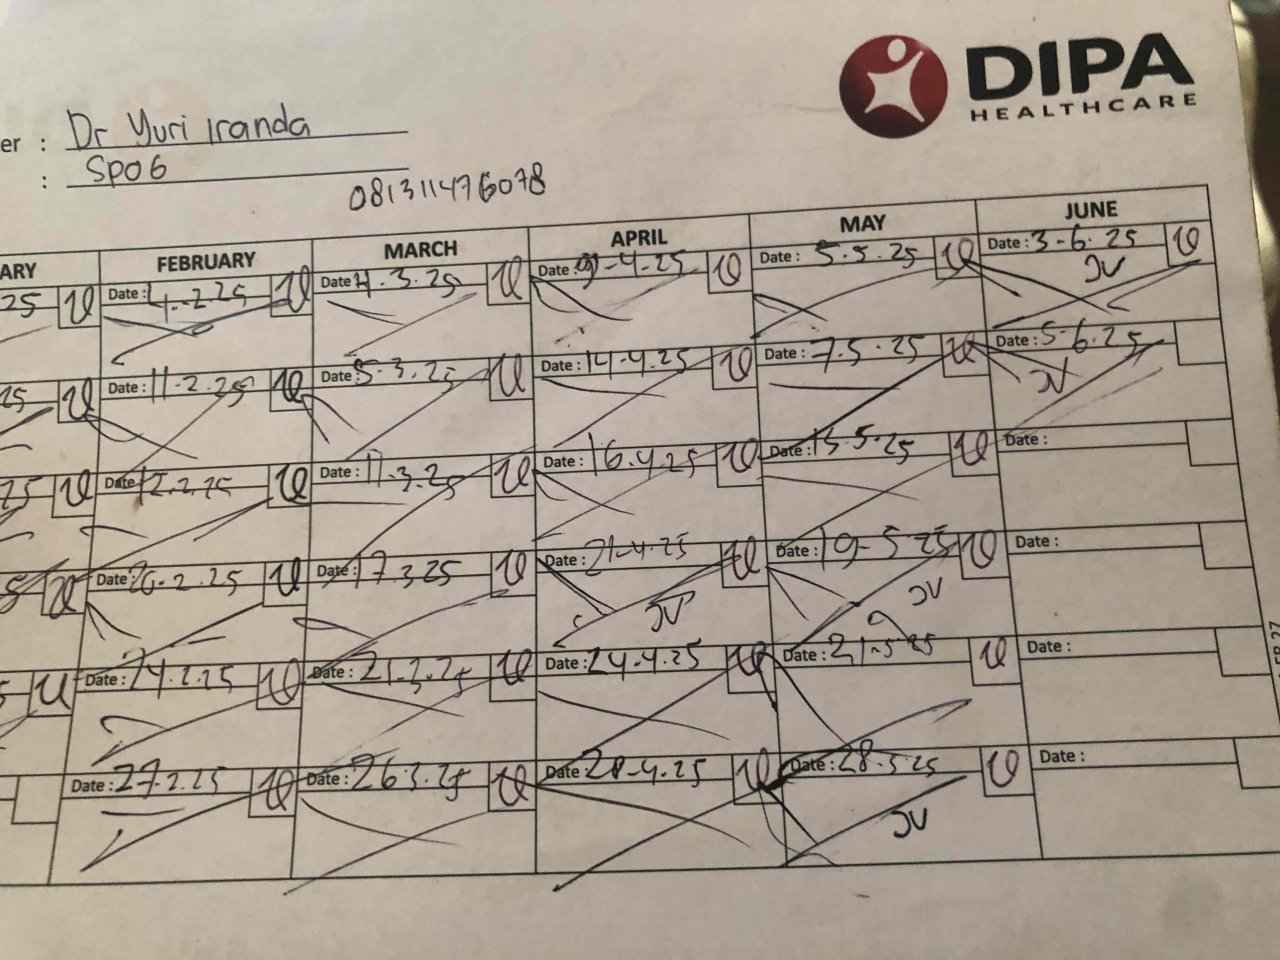 DIPA
HEALTHCARE
er : Dr Yuri Iranda
: SpOG
081311476078
ARY FEBRUARY MARCH APRIL MAY JUNE
25 Date : 4.2.25 Date : 4.3.25 Date : 9-4-25 Date : 5.5.25 Date : 3-6.25
JV
25 Date : 11-2.25 Date : 5-3.25 Date : 14-4.25 Date : 7.5.25 Date : 5-6.25
JV
25 Date : 12.2.25 Date : 11.3.25 Date : 16.4.25 Date : 15.5.25 Date :
Date : 20-2.25 Date : 17.3.25 Date : 21-4.25 Date : 19-5.25 Date :
JV JV
Date : 24.2.25 Date : 21.3.25 Date : 24.4.25 Date : 21-5.25 Date :
Date : 27.2.25 Date : 26.3.25 Date : 28-4.25 Date : 28.5.25 Date :
JV